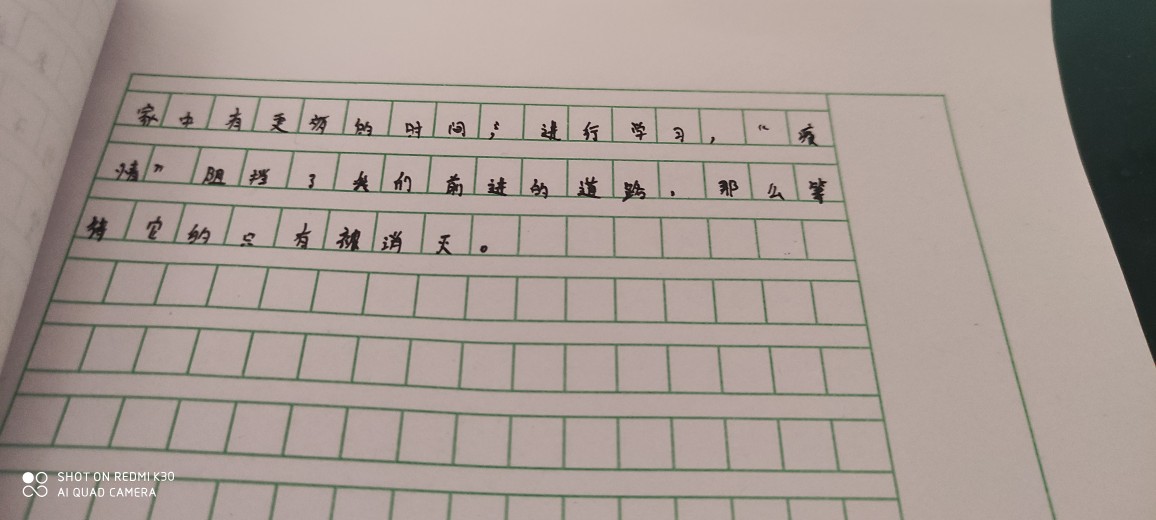 家中有更多的时间，进行学习，“疫
情”阻挡了我们前进的道路，那么等
待它的只有被消灭。
SHOT ON REDMI K30
AI QUAD CAMERA